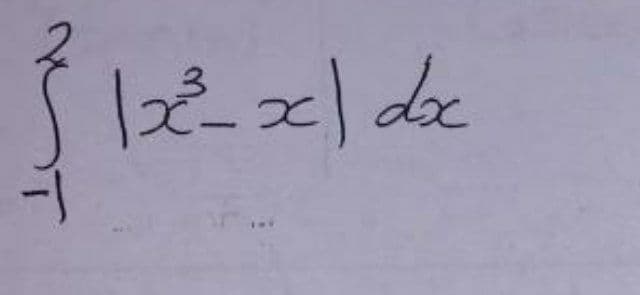 ∫₋₁² |x³ - x| dx